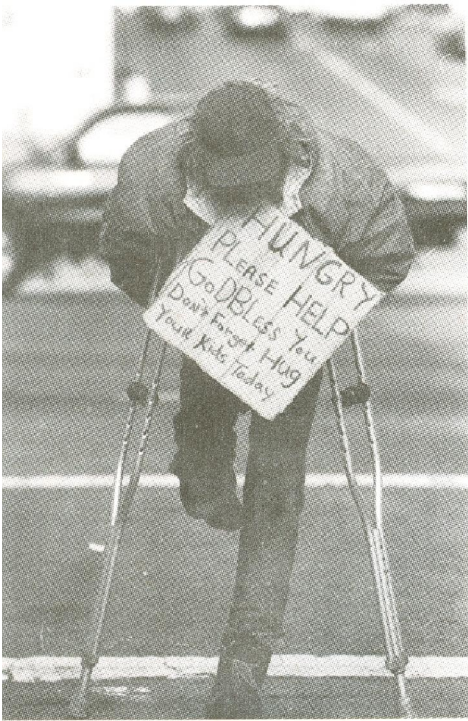 HUNGRY
PLEASE HELP
GoDBLESS You
Don't Forget Hug
Your Kids Today